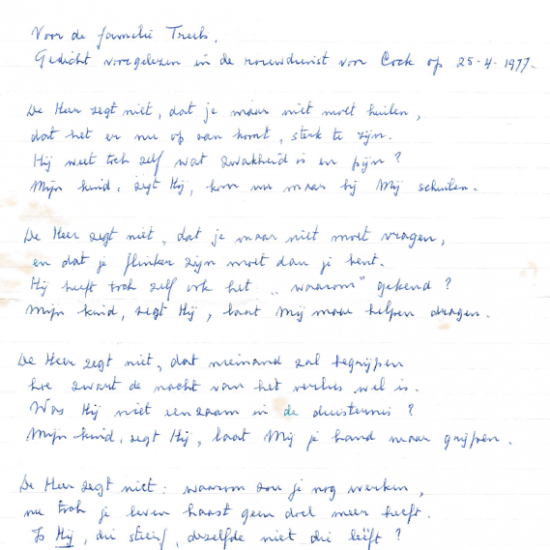 Voor de familie Treeb.
Gedicht voorgelezen in de rouwdienst voor Cock op 25-4-1977-
De Heer zegt niet, dat je maar niet moet huilen,
dat het er nu op aan komt, sterk te zijn.
Hij weet toch zelf wat zwakheid is en pijn?
Mijn kind, zegt Hij, kom nu maar bij Mij schuilen.
De Heer zegt niet, dat je maar niet moet vragen,
en dat je flinker zijn moet dan je bent.
Hij heeft toch zelf ook het „waarom" gekend?
Mijn kind, zegt Hij, laat Mij maar helpen dragen.
De Heer zegt niet, dat niemand zal begrijpen
hoe zwart de nacht van het verlies wel is.
Was Hij niet eenzaam in de duisternis?
Mijn kind, zegt Hij, laat Mij je hand maar grijpen.
De Heer zegt niet: waarom zou je nog werken,
nu toch je leven haast geen doel meer heeft.
Is Hij, die stierf, dezelfde niet die leeft?